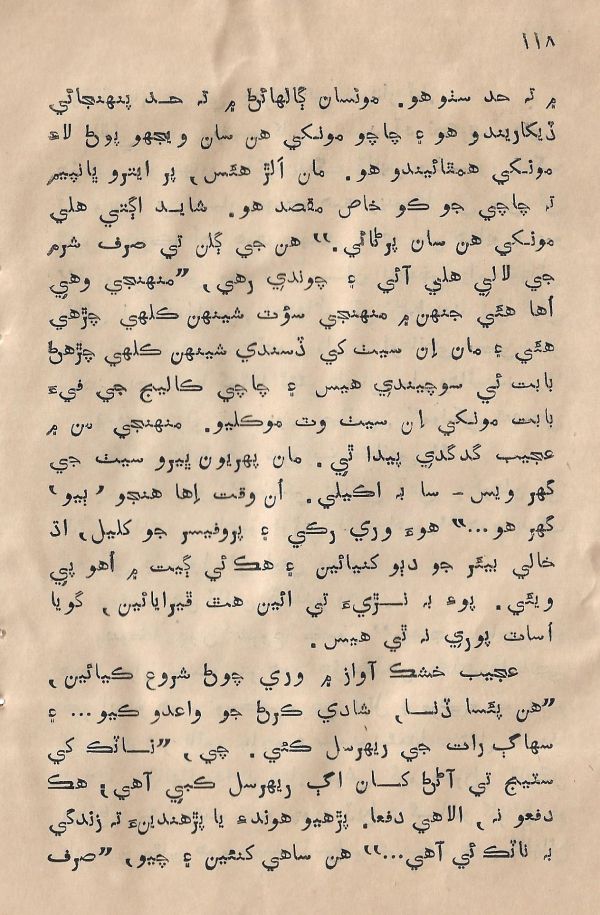 ١١٨
۾ تہ حد سٺو هو. مونسان ڳالهائڻ ۾ تہ حد پنهنجائي
ڏيکاريندو هو ۽ چاچو مونکي هن سان ويجهو پوڻ لاءِ
مونکي همٿائيندو هو. مان الڙ هئس، پر ايترو ڀانپيم
تہ چاچي جو ڪو خاص مقصد هو. شايد اڳتي هلي
مونکي هن سان پرڻائي.“ هن جي ڳلن تي صرف شرم
جي لالي هلي آئي ۽ چوندي رهي، ”منهنجي وهي
اُها هئي جنهن ۾ منهنجي سؤٽ شينهن ڪلهي چڙهي
هئي ۽ مان اِن سيٺ کي ڏسندي شينهن ڪلهي چڙهڻ
بابت ئي سوچيندي هيس ۽ چاچي ڪاليج جي فيءَ
بابت مونکي اِن سيٺ وٽ موڪليو. منهنجي من ۾
عجيب گدگدي پيدا ٿي. مان پهريون ڀيرو سيٺ جي
گهر ويس - سا بہ اڪيلي. اُن وقت اِها هنجو ’ٻيو‘
گهر هو...“ هوءَ وري رڪي ۽ پروفيسر جو کليل، اڌ
خالي بيئر جو دٻو کنيائين ۽ هڪ ئي ڳيت ۾ اُهو پي
ويئي. پوءِ بہ نڙيءَ تي ائين هٿ ڦيرايائين، گويا
اُساٽ پوري نہ ٿي هيس.
عجيب خشڪ آواز ۾ وري چوڻ شروع ڪيائين،
”هن پئسا ڏنا، شادي ڪرڻ جو واعدو ڪيو... ۽
سهاڳ رات جي ريهرسل ڪئي. چي، ”ناٽڪ کي
سٽيج تي آڻڻ کان اڳ ريهرسل ڪبي آهي؛ هڪ
دفعو نہ، الاهي دفعا. پڙهيو هوندءِ يا پڙهندينءَ تہ زندگي
بہ ناٽڪ ئي آهي...“ هن ساهي کنئين ۽ چيو، ”صرف